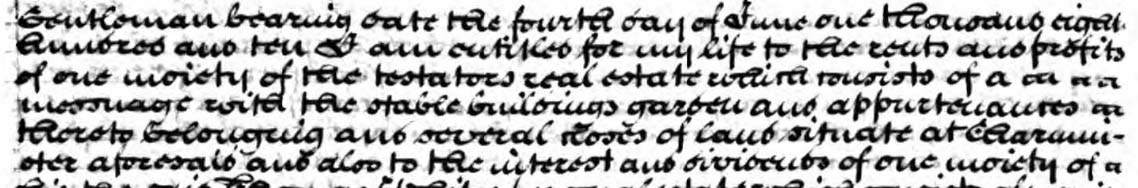 Gentleman bearing date the fourth day of June one thousand eight
hundred and ten I am entitled for my life to the rents and profits
of one moiety of the testators real estate which consists of a
messuage with the stable buildings garden and appurtenances
thereto belonging and several closes of land situate at Charmin-
ster aforesaid and also to the interest and dividends of one moiety of a